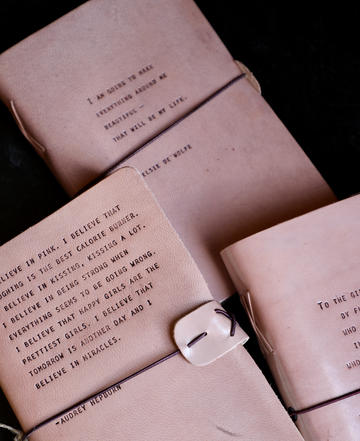 I AM GOING TO MAKE
EVERYTHING AROUND ME
BEAUTIFUL —
THAT WILL BE MY LIFE.
ELSIE DE WOLFE
BELIEVE IN PINK. I BELIEVE THAT
UGHING IS THE BEST CALORIE BURNER.
BELIEVE IN KISSING. KISSING A LOT.
I BELIEVE IN BEING STRONG WHEN
EVERYTHING SEEMS TO BE GOING WRONG.
I BELIEVE THAT HAPPY GIRLS ARE THE
PRETTIEST GIRLS. I BELIEVE THAT
TOMORROW IS ANOTHER DAY AND I
BELIEVE IN MIRACLES.
-AUDREY HEPBURN
TO THE
BY
WHO
I
WHO